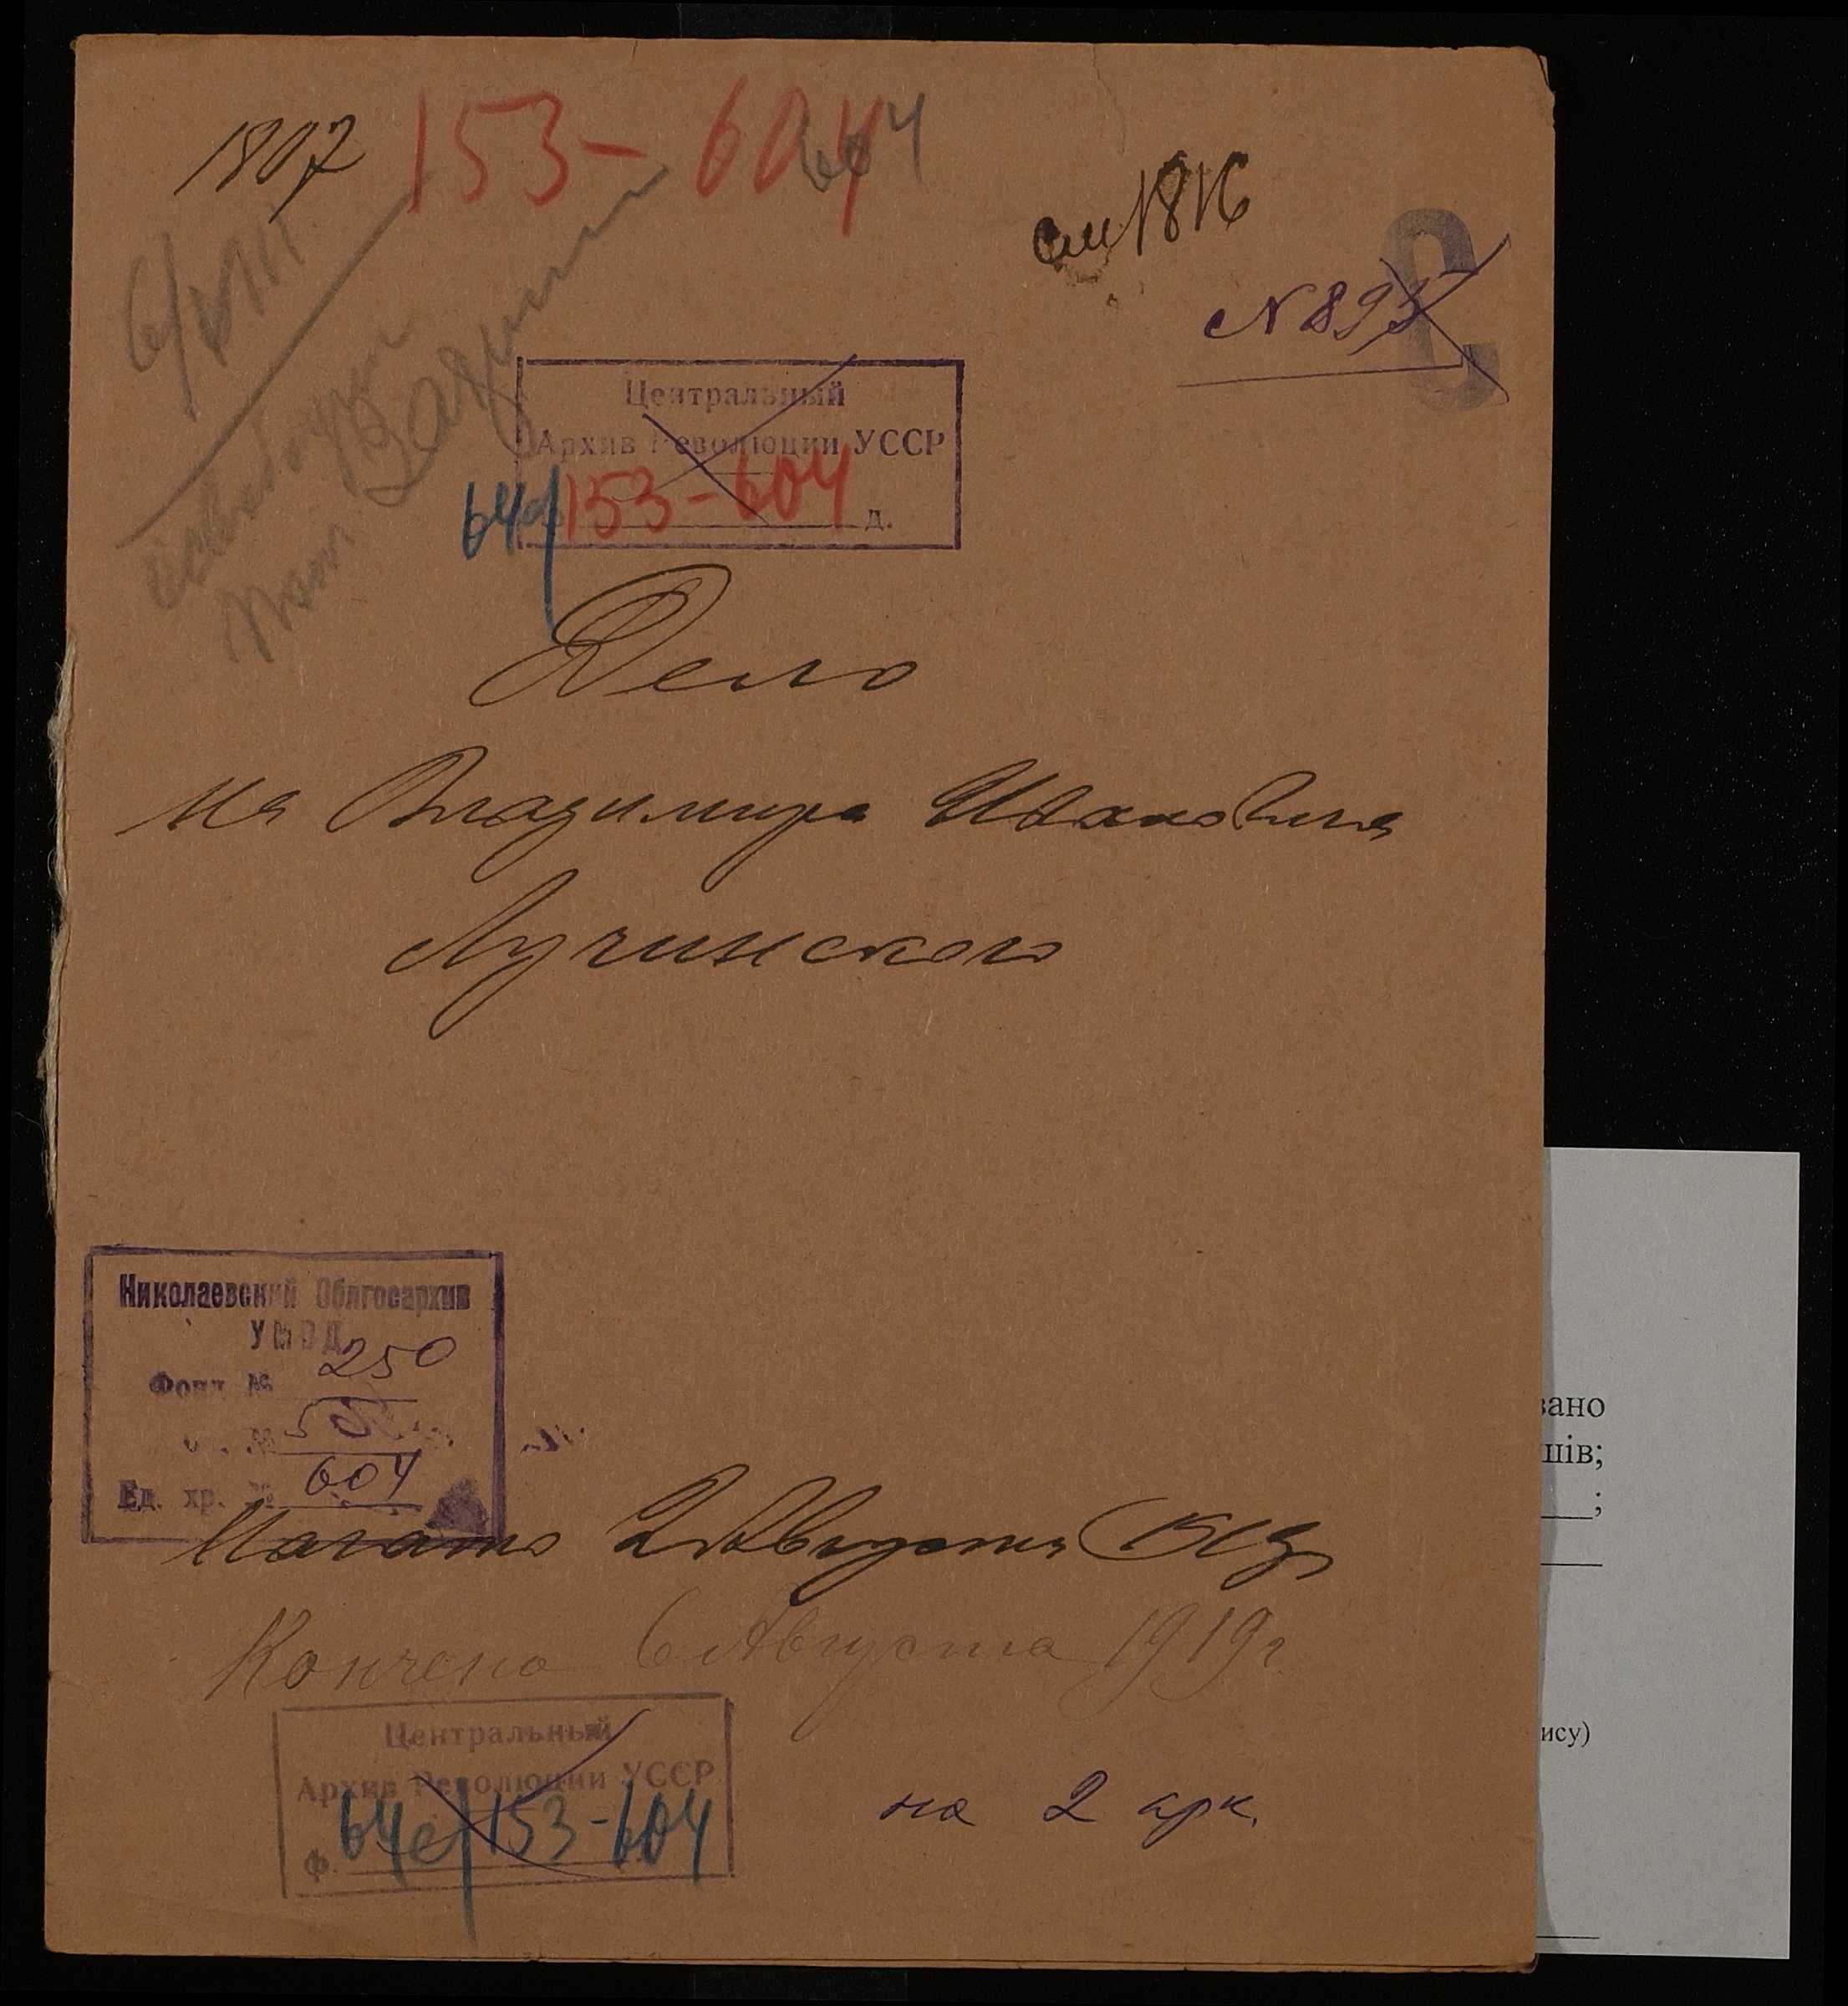 1807 153-604 604
см 1816
6/VIII
N 893
Центральный
Архив Революции УССР
64с/153-604 д.
Дело
На Владимира Ивановича
Лучинского
Николаевский Облгосархив
УМВД
Фонд № 250
Ед. хр. № 604
Начато 2 Августа 1919
Кончено 6 Августа 1919 г
Центральный
Архив Революции УССР
ф. 64с/153-604
на 2 арк.
вано
шів;
;
ису)